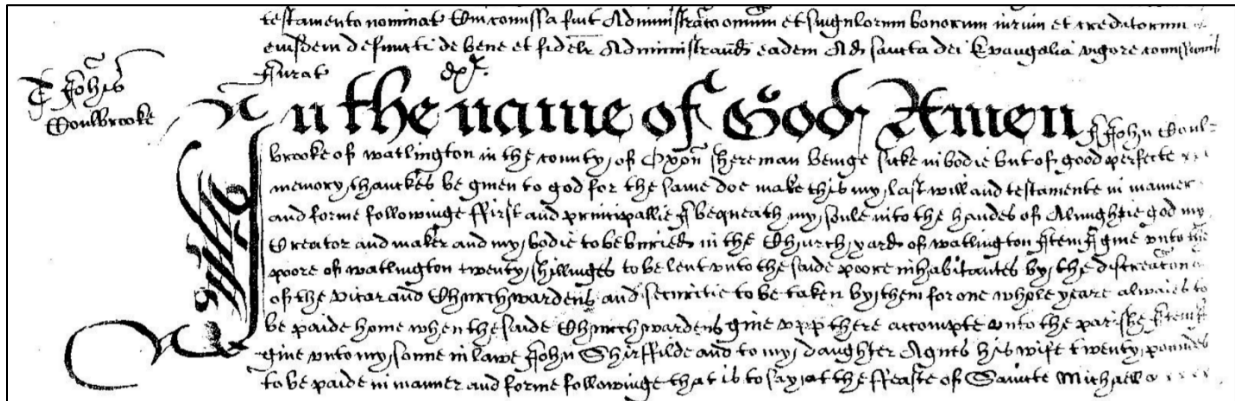 testamento nominat Cui comissa fuit Administraco omniu et singulorum bonorum iurium et creditorum
eiusdem defuncti de bene et fidelr Administrand eadem Ad sancta dei Evangelia vigore comissionis
Jurat
T Johis
Coulbrooke
In the name of God Amen I John Coul=
brooke of Watlington in the county of Oxon shereman beinge sicke in bodie but of good perfecte
memory thanckes be given to god for the same doe make this my last will and testamente in manner
and forme followinge ffirst and principallie I bequeath my soule into the handes of Almightie god my
Creator and maker and my bodie to be buried in the Churchyard of watlington Item I give unto the
poore of watlington twenty shillinges to be lent unto the saide poore inhabitantes by the discreacon
of the vicar and Churchwardens and securitie to be taken by them for one whole yeare alwaies to
be paide home when the saide Churchwardens give upp there accompte unto the parishe Item I
give unto my sonne in lawe John Shirffilde and to my daughter Agnes his wife twenty poundes
to be paide in manner and forme followinge that is to say at the ffeaste of Saincte Michaell